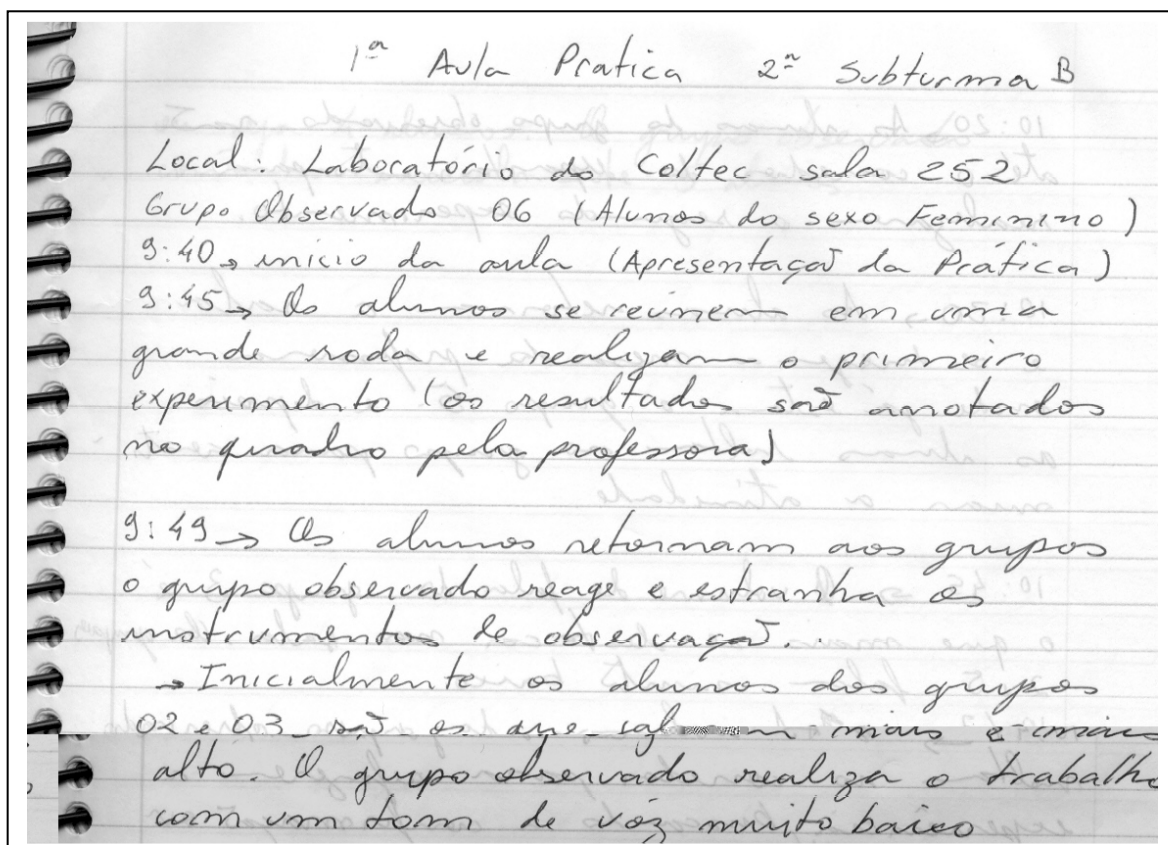 1ª Aula Pratica 2ª Subturma B
Local: Laboratório do Coltec sala 252
Grupo Observado 06 (Alunos do sexo Feminino)
9:40 → inicio da aula (Apresentação da Prática)
9:45 → Os alunos se reúnem em uma
grande roda e realizam o primeiro
experimento (os resultados são anotados
no quadro pela professora)
9:49 → Os alunos retornam aos grupos
o grupo observado reage e estranha os
instrumentos de observação.
→ Inicialmente os alunos dos grupos
02 e 03 são os que mais e mais
alto. O grupo observado realiza o trabalho
com um tom de vóz muito baixo